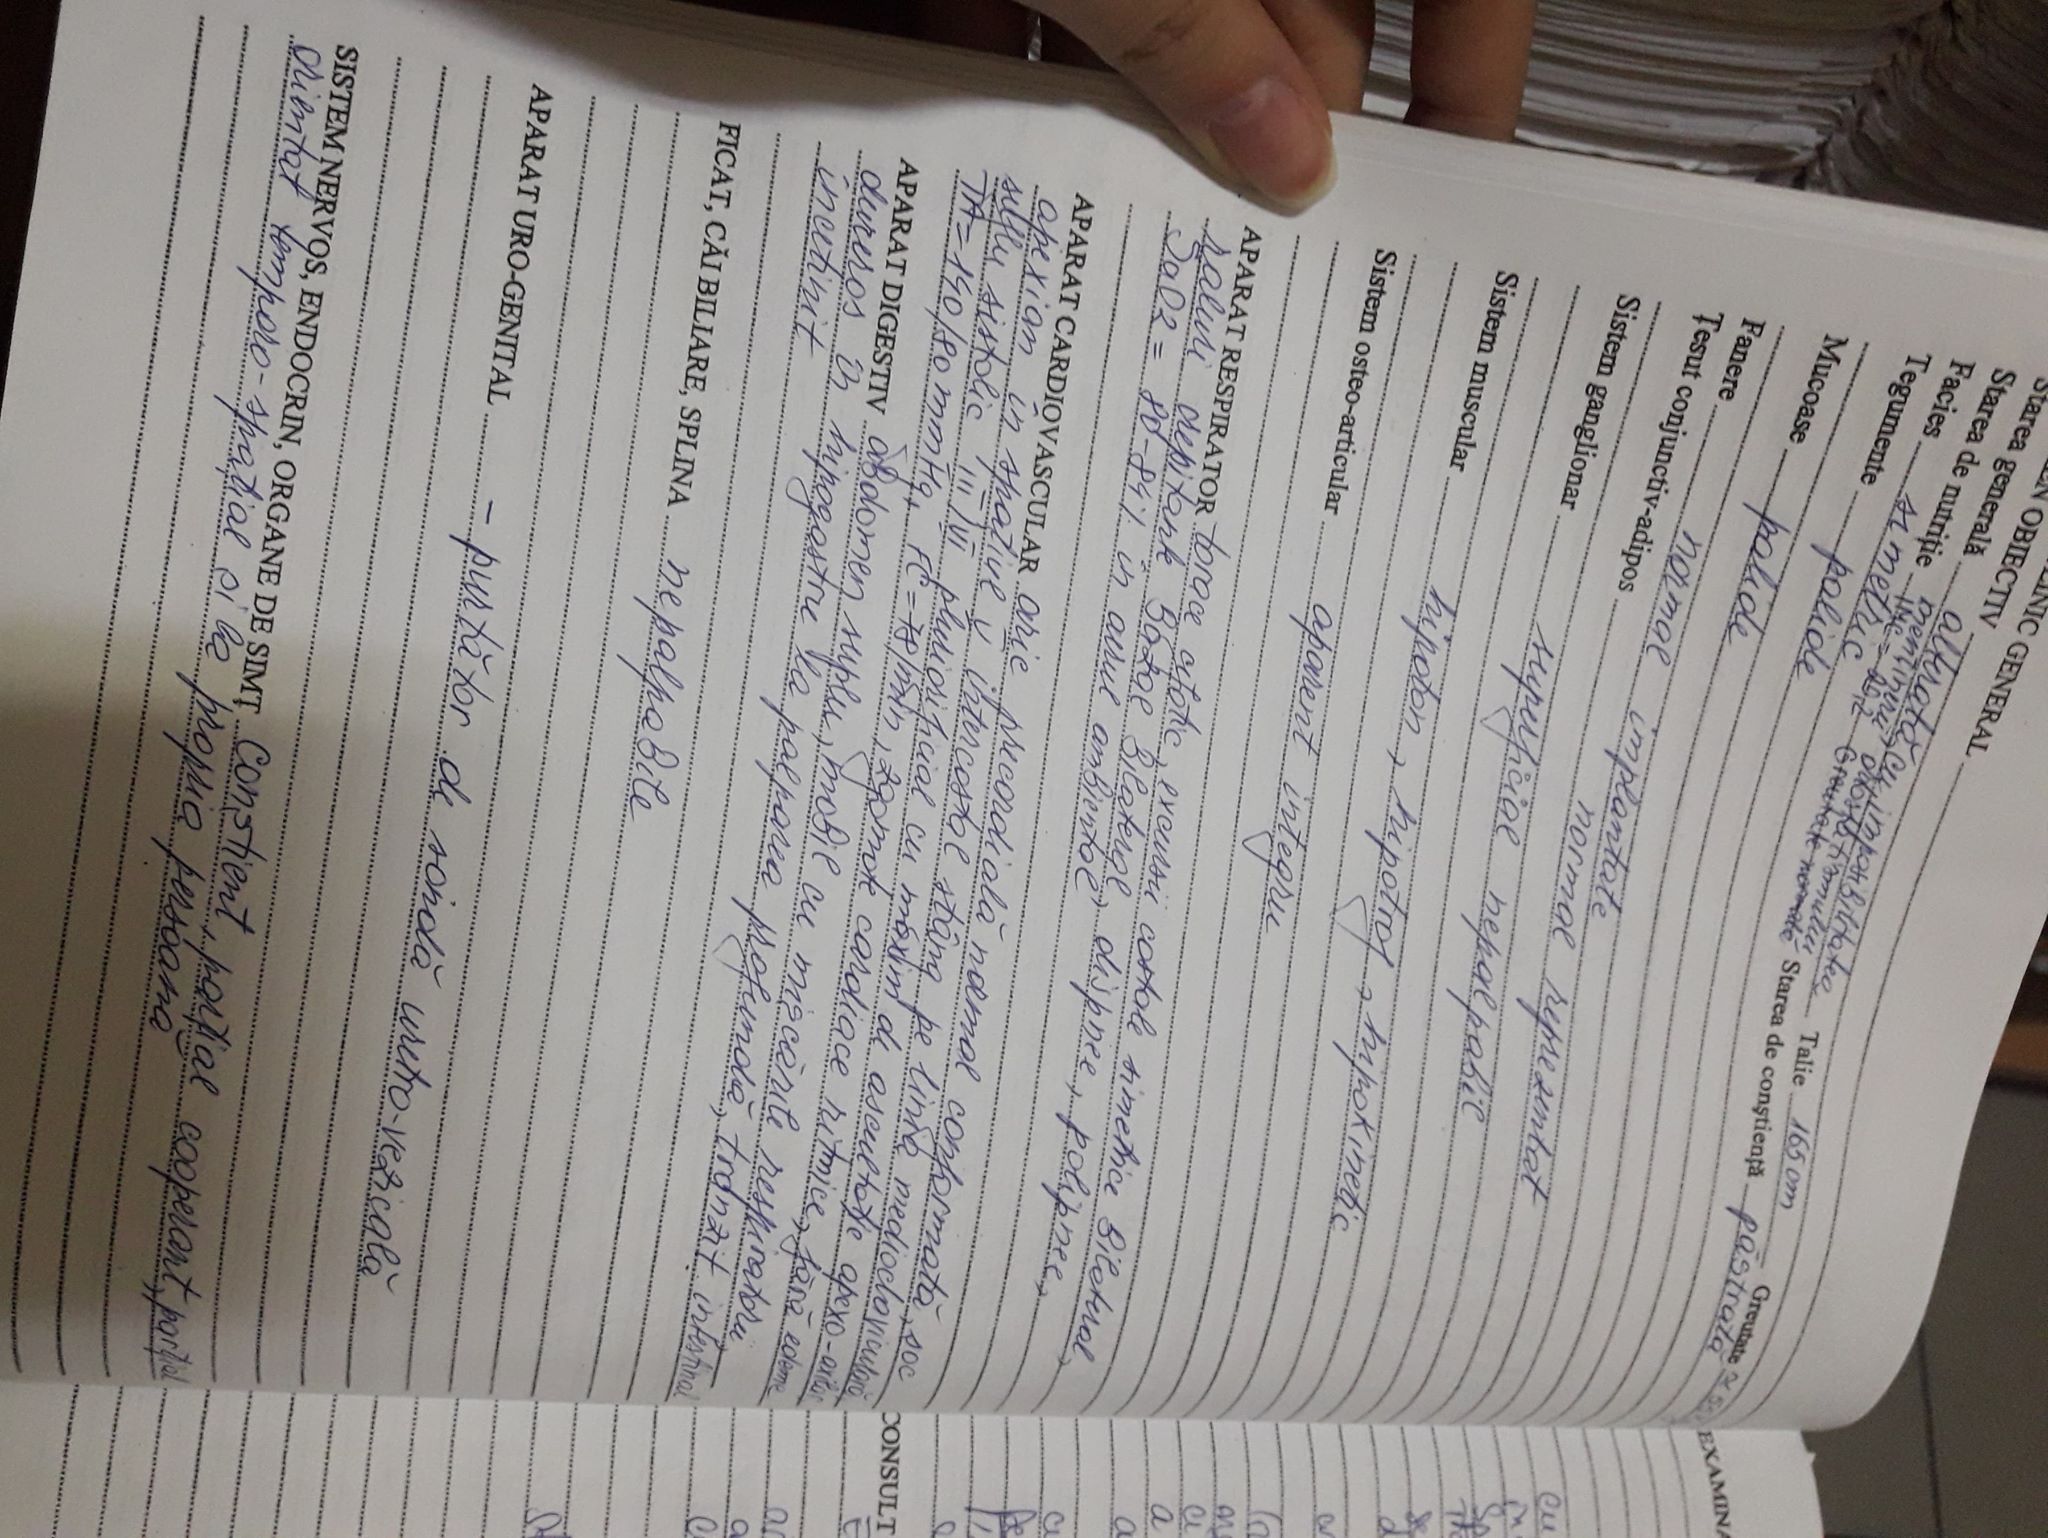 CLINIC GENERAL
OBIECTIV
Starea generală alterată, cu imposibilitatea
menținerii ortostatismului Talie 165 cm Greutate ≈ 55
Starea de nutriție IMC = 20,2 Greutate normală Starea de conștiență păstrată
Facies simetric
Tegumente palide
Mucoase palide
Fanere normal implantate
Țesut conjunctiv-adipos normal reprezentat
Sistem ganglionar superficial nepalpabil
Sistem muscular hipoton, hipotrof, hipokinetic
Sistem osteo-articular aparent integru
APARAT RESPIRATOR torace cifotic, excursii costale simetrice bilateral,
raluri crepitante bazal bilateral, dispnee, polipnee,
SaO2 = 80-84% în aerul ambiental
APARAT CARDIOVASCULAR arie precordială normal conformată, șoc
apexian în spațiul V intercostal stâng pe linia medioclaviculară
suflu sistolic III/VI pluriorificial cu maxim de ascultație apexo-axilar
TA = 140/80 mmHg, FC = 78/min, zgomote cardiace ritmice, fără edeme
APARAT DIGESTIV abdomen suplu, mobil cu mișcările respiratorii,
dureros în hipogastru la palparea profundă, tranzit intestinal
încetinit
FICAT, CĂI BILIARE, SPLINA nepalpabile
APARAT URO-GENITAL - purtător de sondă uretro-vezicală
SISTEM NERVOS, ENDOCRIN, ORGANE DE SIMȚ Conștient, parțial cooperant, parțial
orientat temporo-spațial și la propria persoană
CONSULT